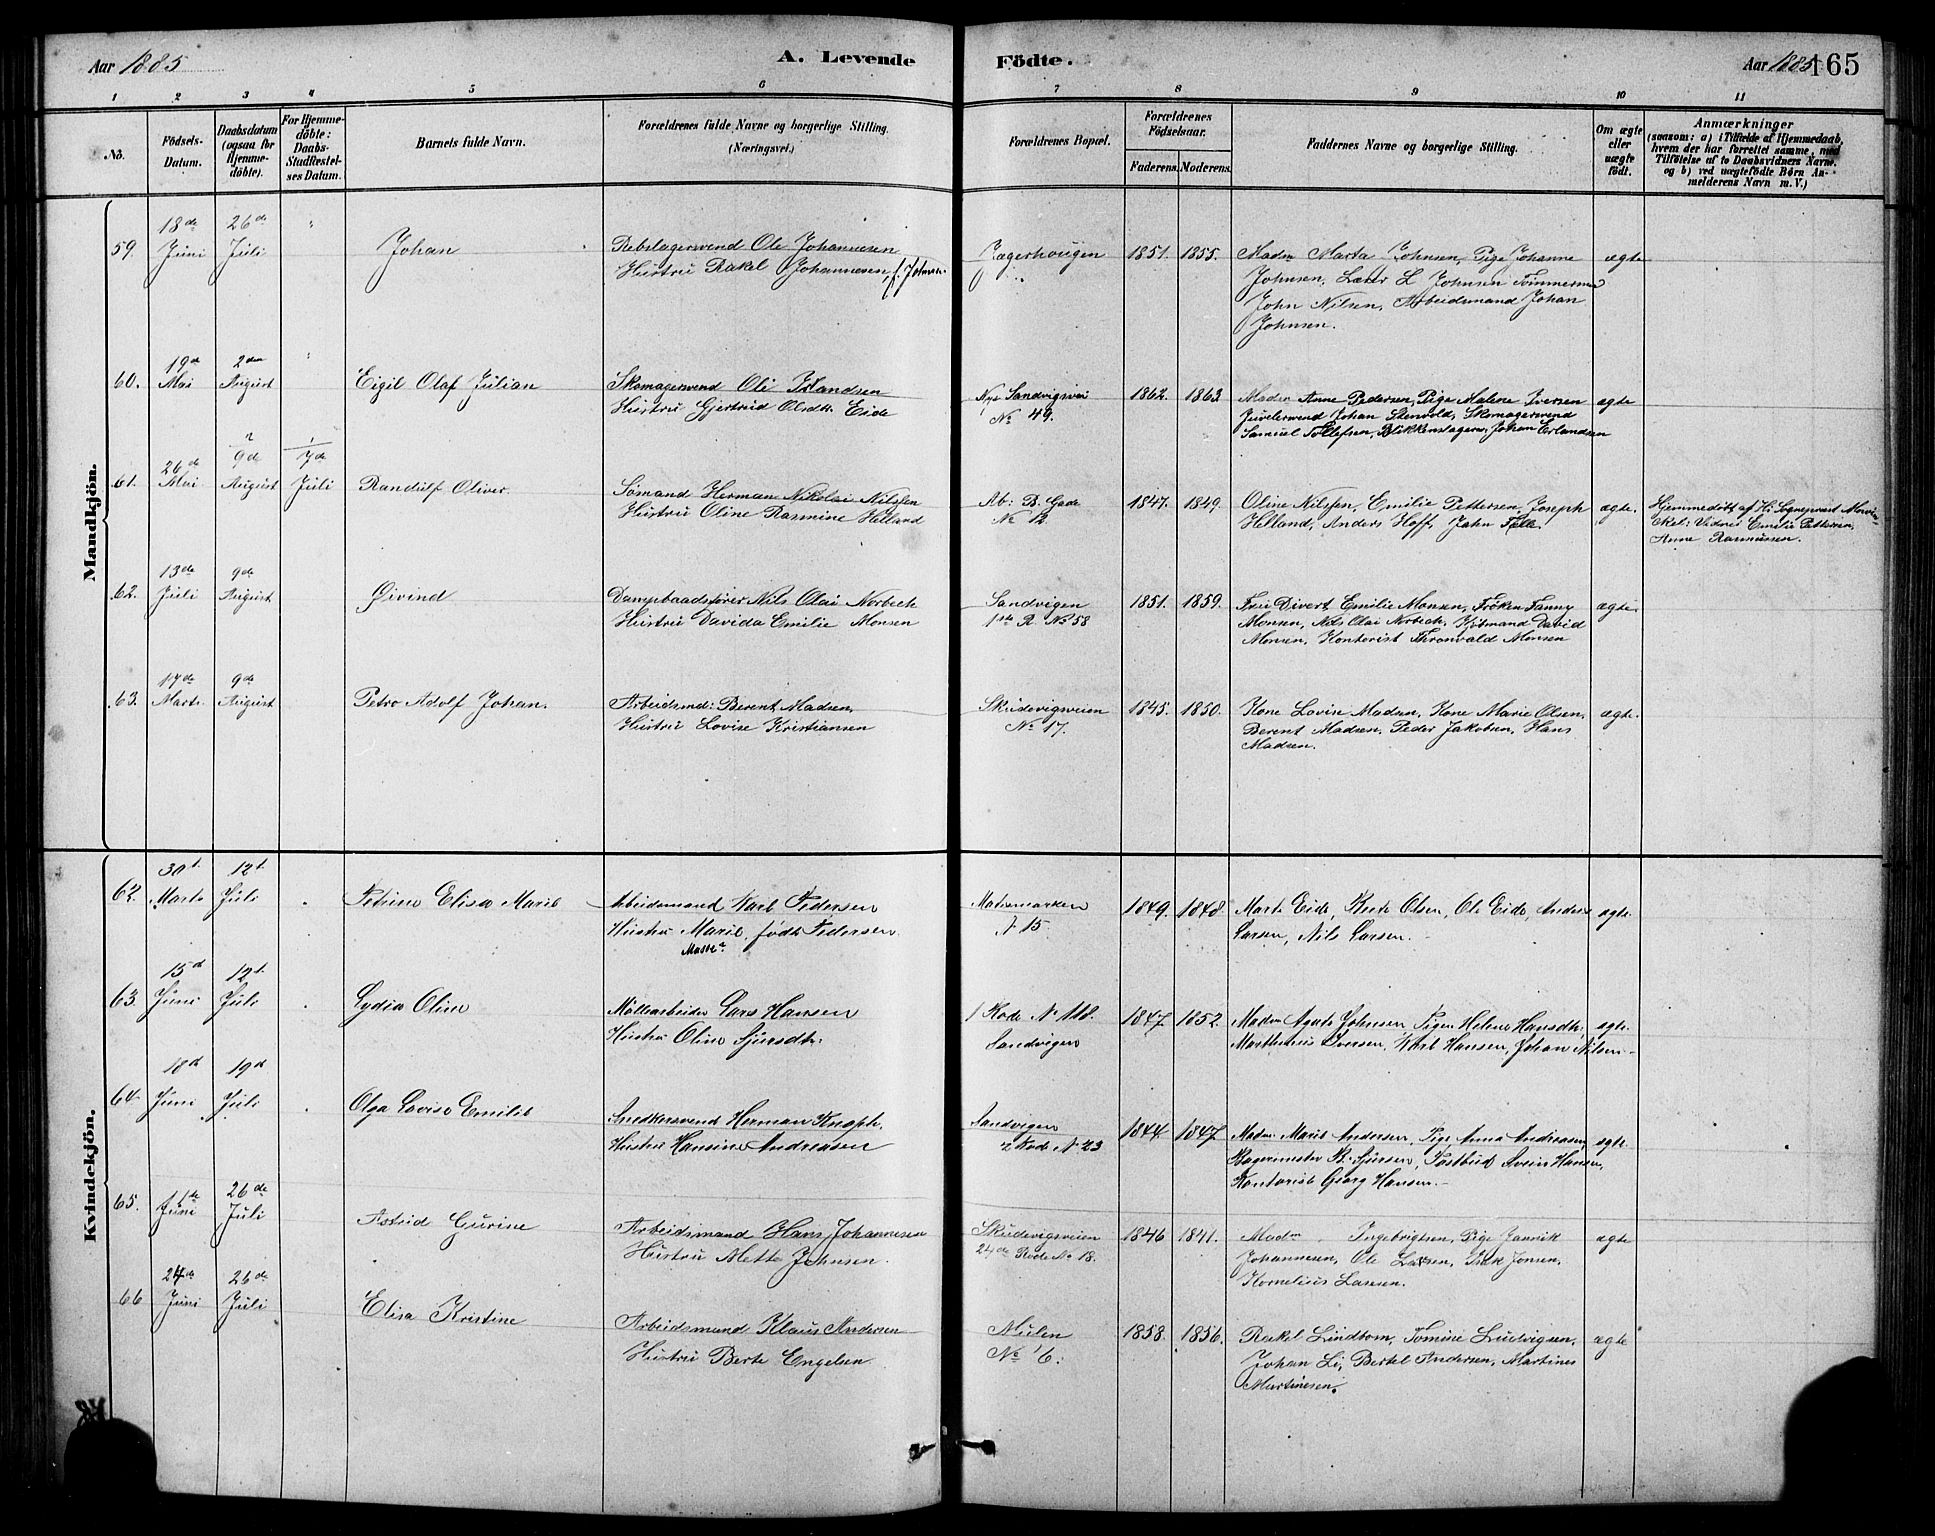 Aar 1885
A. Levende Födte.
Aar 1885
165
1 2 3 4 5 6 7 8 9 10 11
No.
Födsels-Datum.
Daabsdatum (ogsaa for Hjemme-döbte).
For Hjemme-döbte: Daabs-Stadfæstel-ses Datum.
Barnets fulde Navn.
Forældrenes fulde Navne og borgerlige Stilling.
(Næringsvei.)
Forældrenes Bopæl.
Forældrenes Födselsaar.
Faderens. Moderens.
Faddernes Navne og borgerlige Stilling.
Om ægte eller uægte födt.
Anmærkninger
(saasom: a) i Tilfælde af Hjemmedaab, hvem der har forrettet samme, med Tilföielse af to Daabsvidners Navne, og b) ved uægtefödte Börn An-melderens Navn m. V.)
Mandkjön.
59. 18de Juni 26de Juli " Johan
Rebslagersvend Ole Johannesen
Hustru Rakel Johannesen, f. Johnsen
Jægerhougen 1851. 1855.
Madm Marta Johnsen, Pige Johanne
Johnsen, Lærer L Johnsen Tømmermand
John Nilsen, Arbeidsmand Johan
Johnsen.
ægte
60. 19de Mai 2den August " Eigil Olaf Julian
Skomagersvend Oli Erlandsen
Hustru Gjertrud Olsdtr. Eide
Nye Sandvigsvei
No 49.
1862. 1863
Madm Anne Pedersen, Pige Malene Iversen
Juvelersvend Johan Stenvold, Skomagersvend
Samuel Tollefsen, Blikkenslager Johan Erlandsen
ægte
61. 26de Mai 9de August 7de Juli Randulf Oliver.
Sømand Herman Nikolai Nilsfen
Hustru Oline Rasmine Helland
Ab: B. Gade
No 12
1847. 1849.
Oline Nilsfen, Emilie Pettersen, Joseph
Helland, Anders Hoff, John Felle.
ægte.
Hjemmedöbt af Hr. Sognepræst
Vidner Emilie Pettersen,
Anne Rasmussen.
62. 13de Juli 9de August Øivind
Dampbaadsfører Nils Olai Norbech
Hustru Davida Emilie Monsen
Sandvigen
1ste R. No 58
1851. 1859.
Fru Divert Emilie Monsen, Frøken Fanny
Monsen, Nils Olai Norbech, Kjøbmand David
Monsen, Kontorist Thronvald Monsen
ægte.
63. 17de Marts 9de August Petro Adolf Johan.
Arbeidsmd: Berent Madsen,
Hustru Lovise Kristiansen
Skudevigsveien
No 17.
1845. 1850.
Kone Lovise Madsen, Kone Marie Olsen,
Berent Madsen, Peder Jakobsen, Hans
Madsen.
ægte.
Kvindekjön.
62. 30t Marts 12t Juli Petrine Elisa Marie
Arbeidsmand Karl Pedersen
Hustru Marie födt Pedersen.
Maste?
Matremarken
N 15
1849. 1848.
Marte Eide, Berte Olsen, Ole Eide, Anders
Larsen, Nils Larsen.
ægte.
63 15d Juni 12t Juli Lydia Oline
Møllearbeider Lars Hansen
Hustru Oline Sjursdtr.
1 Rode No 118.
Sandvigen
1847 1852.
Madm Agate Johnsen, Pigen Helene Hansdtr,
Marthinus Iversen, Karl Hansen, Johan Nilsen.
ægte.
64 18d Juni 19d Juli Olga Lovise Emilie
Snedkersvend Herman Knoph.
Hustru Hansine Andreasen
Sandvigen
2 Rode No 23
1844. 1847
Madm Marie Andersen, Pige Anna Andreasen,
Bagermester B. Sjursen, Postbud Svein Hansen,
Kontorist Georg Hansen.
ægte.
65. 11de Juni 26de Juli Astrid Gurine
Arbeidsmand Hans Johannesen
Hustru Mette Johnsen.
Skudevigsveien
24de Rode No 18.
1846 1841.
Madm Ingebrigtsen, Pige Jannik
Johannesen, Ole Larsen, Isak Jonsen,
Kornelius Larsen.
ægte
66 24de Juni 26de Juli Elisa Kristine
Arbeidsmand Klaus Andersen
Hustru Berte Engelsen.
Mulen
No 16.
1858. 1856.
Rakel Lindbom, Tomine Ludvigsen,
Johan Li, Bertel Andersen, Martines
Martinesen.
ægte